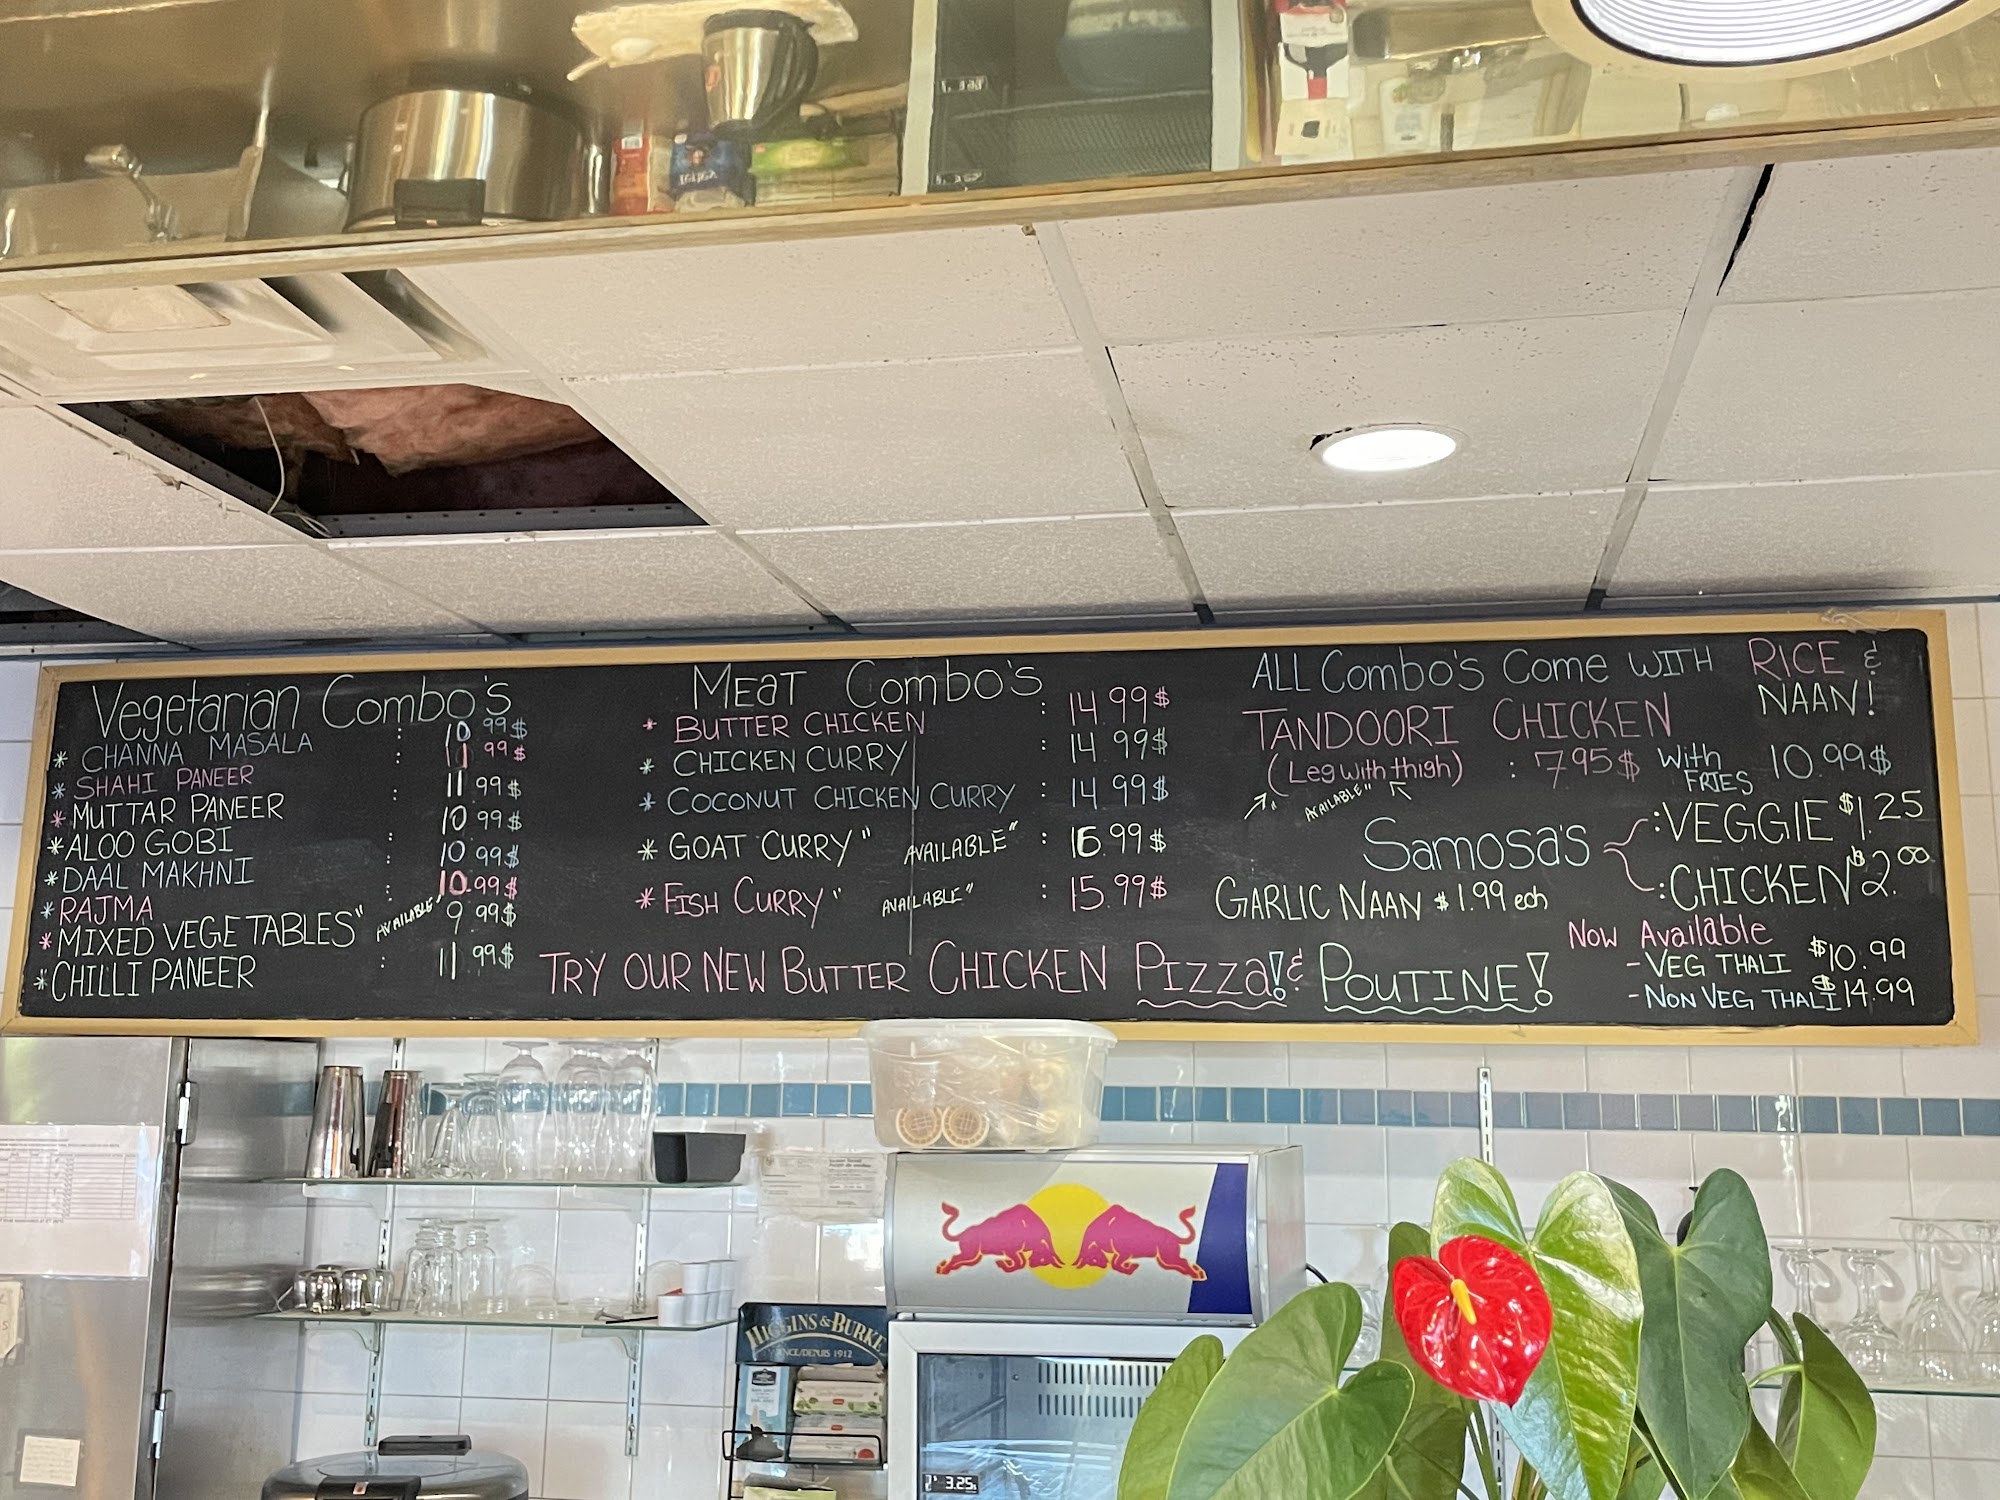 Vegetarian Combo's
* CHANNA MASALA : 10.99$
* SHAHI PANEER 11.99$
* MUTTAR PANEER : 11.99$
* ALOO GOBI : 10.99$
* DAAL MAKHNI : 10.99$
* RAJMA : 10.99$
* MIXED VEGETABLES" AVAILABLE" 9.99$
* CHILLI PANEER : 11.99$
MEAT Combo's
* BUTTER CHICKEN : 14.99$
* CHICKEN CURRY : 14.99$
* COCONUT CHICKEN CURRY : 14.99$
* GOAT CURRY" AVAILABLE" : 16.99$
* FISH CURRY" AVAILABLE" : 15.99$
TRY OUR NEW BUTTER CHICKEN PIZZa! & POUTINE!
ALL Combo's Come WITH RICE &
NAAN!
TANDOORI CHICKEN
(Leg with thigh) : 7.95$ With FRIES 10.99$
"AVAILABLE"
Samosa's :VEGGIE $1.25
:CHICKEN $2.00
GARLIC NAAN $1.99 ech
Now Available
- VEG THALI $10.99
- NON VEG THALI $14.99
HIGGINS & BURKE
SINCE/DEPUIS 1912
3.25